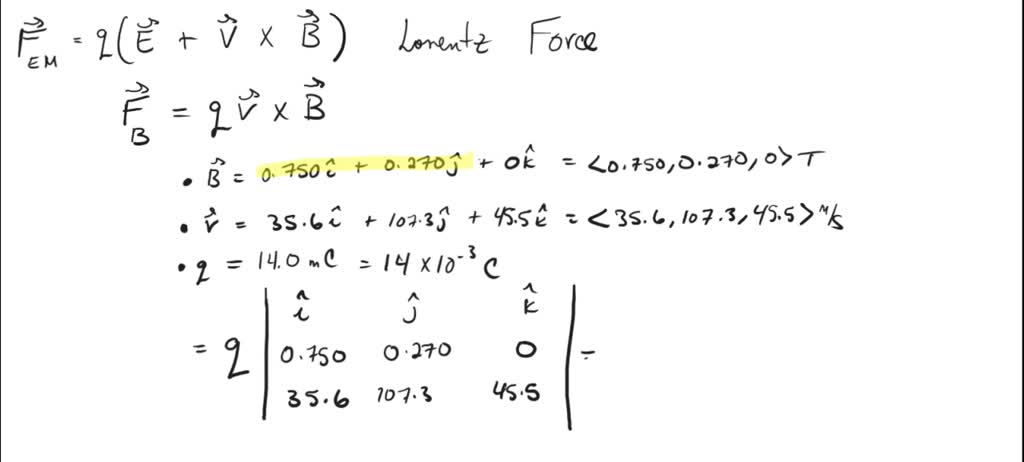 F⃗_EM = q(E⃗ + V⃗ × B⃗) Lorentz Force
F⃗_B = q v⃗ × B⃗
• B⃗ = 0.750î + 0.270ĵ + 0k̂ = <0.750, 0.270, 0> T
• v⃗ = 35.6î + 107.3ĵ + 45.5k̂ = <35.6, 107.3, 45.5> m/s
• q = 14.0 mC = 14 × 10⁻³ C
î ĵ k̂
= q | 0.750 0.270 0 | =
35.6 107.3 45.5